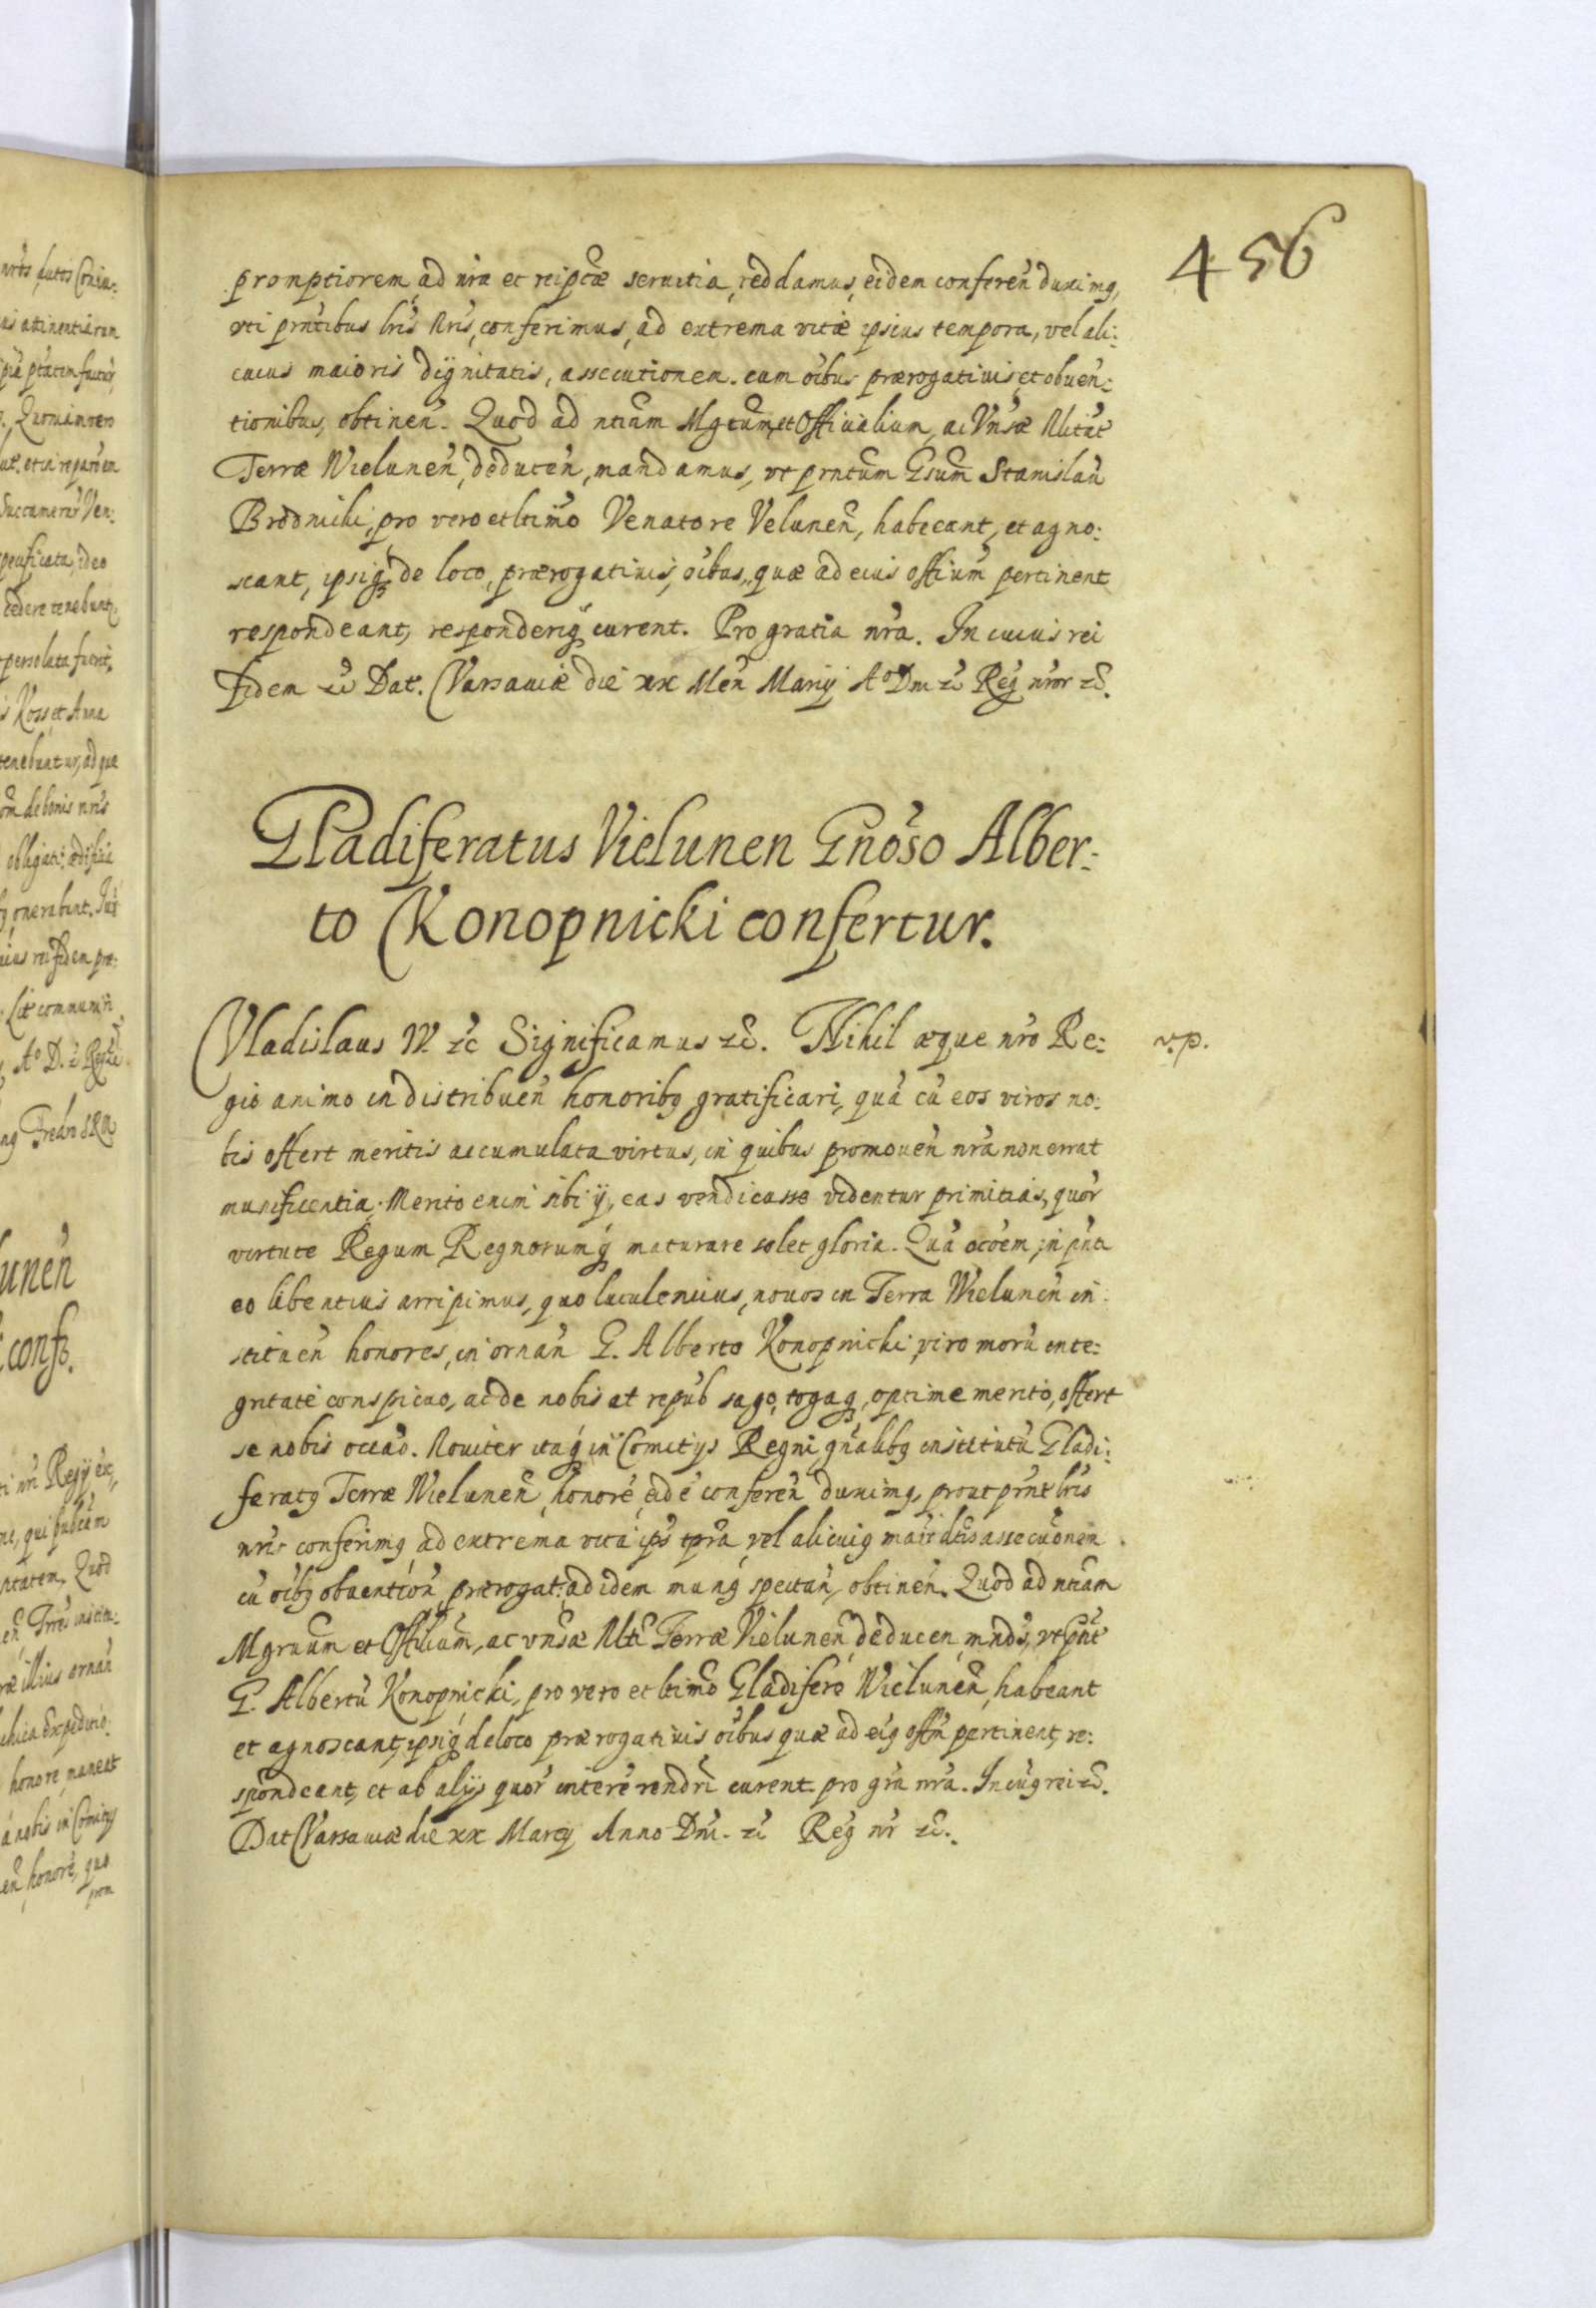 456
promptiorem ad nra et reipcæ seruitia, reddamus, eidem conferen duximg,
vti prntibus lris nris, conferimus, ad extrema vitæ ipsius tempora, vel ali:
cuius maioris dignitatis, assecutionem. cum oibus prærogatiuis, et obuen:
tionibus, obtinen. Quod ad ntiam Mgtum, et Offitialium, ac Vnsæ Nlitat
Terræ Wielunen, deducen, mandamus, vt prntum Gsum Stanislau
Brodnicki, pro vero et ltimo Venatore Velunen, habeant, et agno:
scant, ipsiq de loco, prærogatiuis, oibus, quæ ad eius offium pertinent
respondeant, responderiq curent. Pro gratia nra. In cuius rei
fidem etc Dat. Varsauiæ die xx Men Marty Ao Dni etc Reg nror etc.
Gladiferatus Vielunen Gnoso Alber:
to Konopnicki confertur.
Vladislaus IV. etc Significamus etc. Nihil æque nro Re:
v.p.
gio animo in distribuen honoribg gratificari, qua cu eos viros no:
bis offert meritis accumulata virtus, in quibus promouen nra non errat
munificentia. Merito enim sibi ij, eas vendicasse videntur primitias, quor
virtute Regum Regnorumq maturare solet gloria. Qua ocoem, in pnti
eo libentius arripimus, quo luculentius, nouos in Terra Wielunen in:
stituen honores, in ornan G. Alberto Konopnicki, viro moru inte:
gritate conspicuo, ac de nobis at repub sago, togaq, optime merito, offert
se nobis occao. Nouiter itaq in Comitijs Regni gnalibg institutu Gladi:
feratg Terræ Wielunen, honore, eide conferen duximg, prout prnt lris
nris conferimg ad extrema vitæ ips tpra, vel alicuig mair dtis assecuonem
cu oibg obuention prærogat: ad idem mung spectan, obtinen. Quod ad ntiam
Mgruum et Offilium, ac vnsæ Nlti Terræ Vielunen deducen, mnds, vt pnt
G. Albertu Konopnicki, pro vero et ltimo Gladifero Wielunen, habeant
et agnoscant, ipsiq de loco prærogatiuis oibus quæ ad eig offm pertinent, re:
spondeant, et ab alijs quor intere rendri curent pro gra nra. In cug rei etc.
Dat Varsauiæ die xx Marty Anno Dni. etc Reg nr etc.